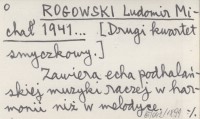 O ROGOWSKI Ludomir Mi-
chał 1941... [Drugi kwartet
smyczkowy.]
Zawiera echa podhalań-
skiej muzyki raczej w har-
monii niż w melodyce.